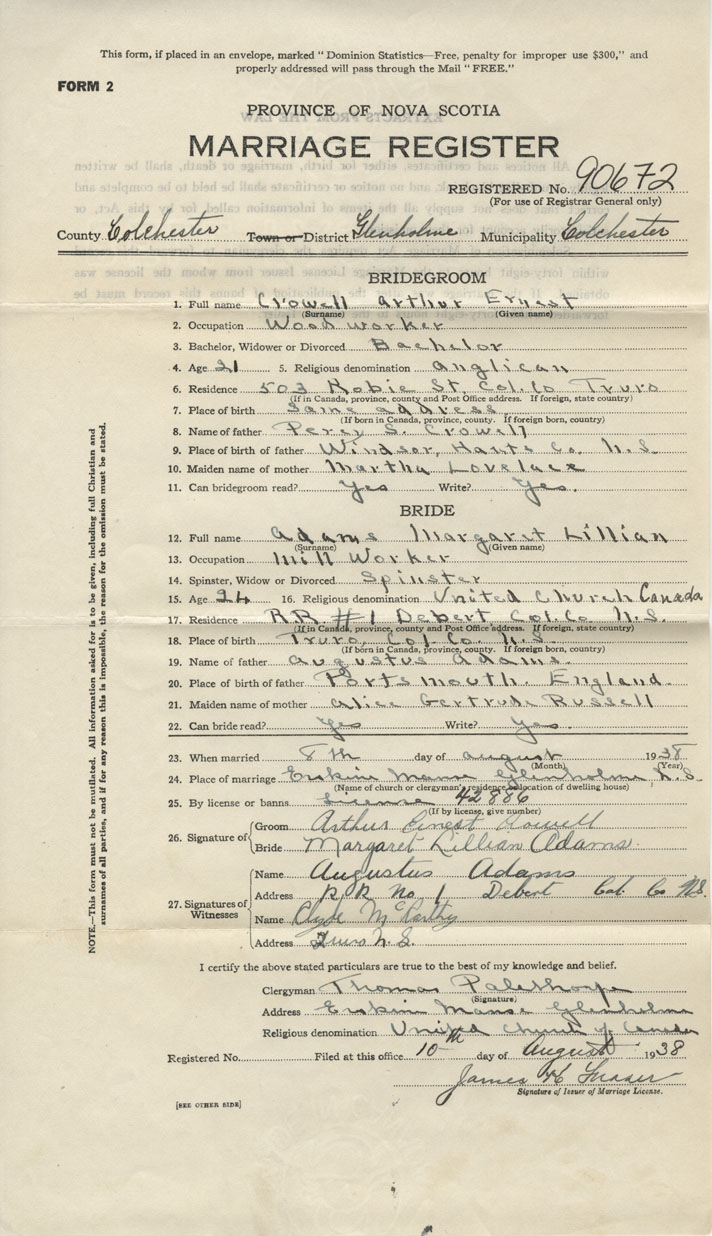 This form, if placed in an envelope, marked "Dominion Statistics—Free, penalty for improper use $300," and
properly addressed will pass through the Mail "FREE."
FORM 2
PROVINCE OF NOVA SCOTIA
MARRIAGE REGISTER
REGISTERED No. 90672
(For use of Registrar General only)
County Colchester Town or District Glenholme Municipality Colchester
BRIDEGROOM
1. Full name Crowell Arthur Ernest
(Surname) (Given name)
2. Occupation Wood worker
3. Bachelor, Widower or Divorced Bachelor
4. Age 21 5. Religious denomination Anglican
6. Residence 503 Robie St. Col. Co Truro
(If in Canada, province, county and Post Office address. If foreign, state country)
7. Place of birth Same address
(If born in Canada, province, county. If foreign born, country)
8. Name of father Percy S. Crowell
9. Place of birth of father Windsor, Hants Co. N.S.
10. Maiden name of mother Martha Lovelace
11. Can bridegroom read? Yes Write? Yes.
BRIDE
12. Full name Adams Margaret Lillian
(Surname) (Given name)
13. Occupation Mill Worker
14. Spinster, Widow or Divorced Spinster
15. Age 24 16. Religious denomination United Church Canada
17. Residence R.R. #1 Debert Col. Co. N.S.
(If in Canada, province, county and Post Office address. If foreign, state country)
18. Place of birth Truro Col. Co. N.S.
(If born in Canada, province, county. If foreign born, country)
19. Name of father Augustus Adams.
20. Place of birth of father Portsmouth, England.
21. Maiden name of mother Alice Gertrude Russell
22. Can bride read? Yes Write? Yes.
23. When married 8th day of August 1938
(Month) (Year)
24. Place of marriage Erskine Manse Glenholme N.S.
(Name of church or clergyman's residence or location of dwelling house)
25. By license or banns License 42886
(If by license, give number)
26. Signature of Groom Arthur Ernest Crowell
Bride Margaret Lillian Adams.
27. Signatures of Witnesses
Name Augustus Adams
Address R R No 1 Debert Col. Co N.S.
Name Clyde McCarthy
Address Truro N.S.
I certify the above stated particulars are true to the best of my knowledge and belief.
Clergyman Thomas Palethorpe
(Signature)
Address Erskin Manse Glenholme
Religious denomination United Church of Canada
Registered No. Filed at this office 10th day of August 1938
James H Fraser
Signature of Issuer of Marriage License.
[SEE OTHER SIDE]
NOTE.—This form must not be mutilated. All information asked for is to be given, including full Christian and
surnames of all parties, and if for any reason this is impossible, the reason for the omission must be stated.